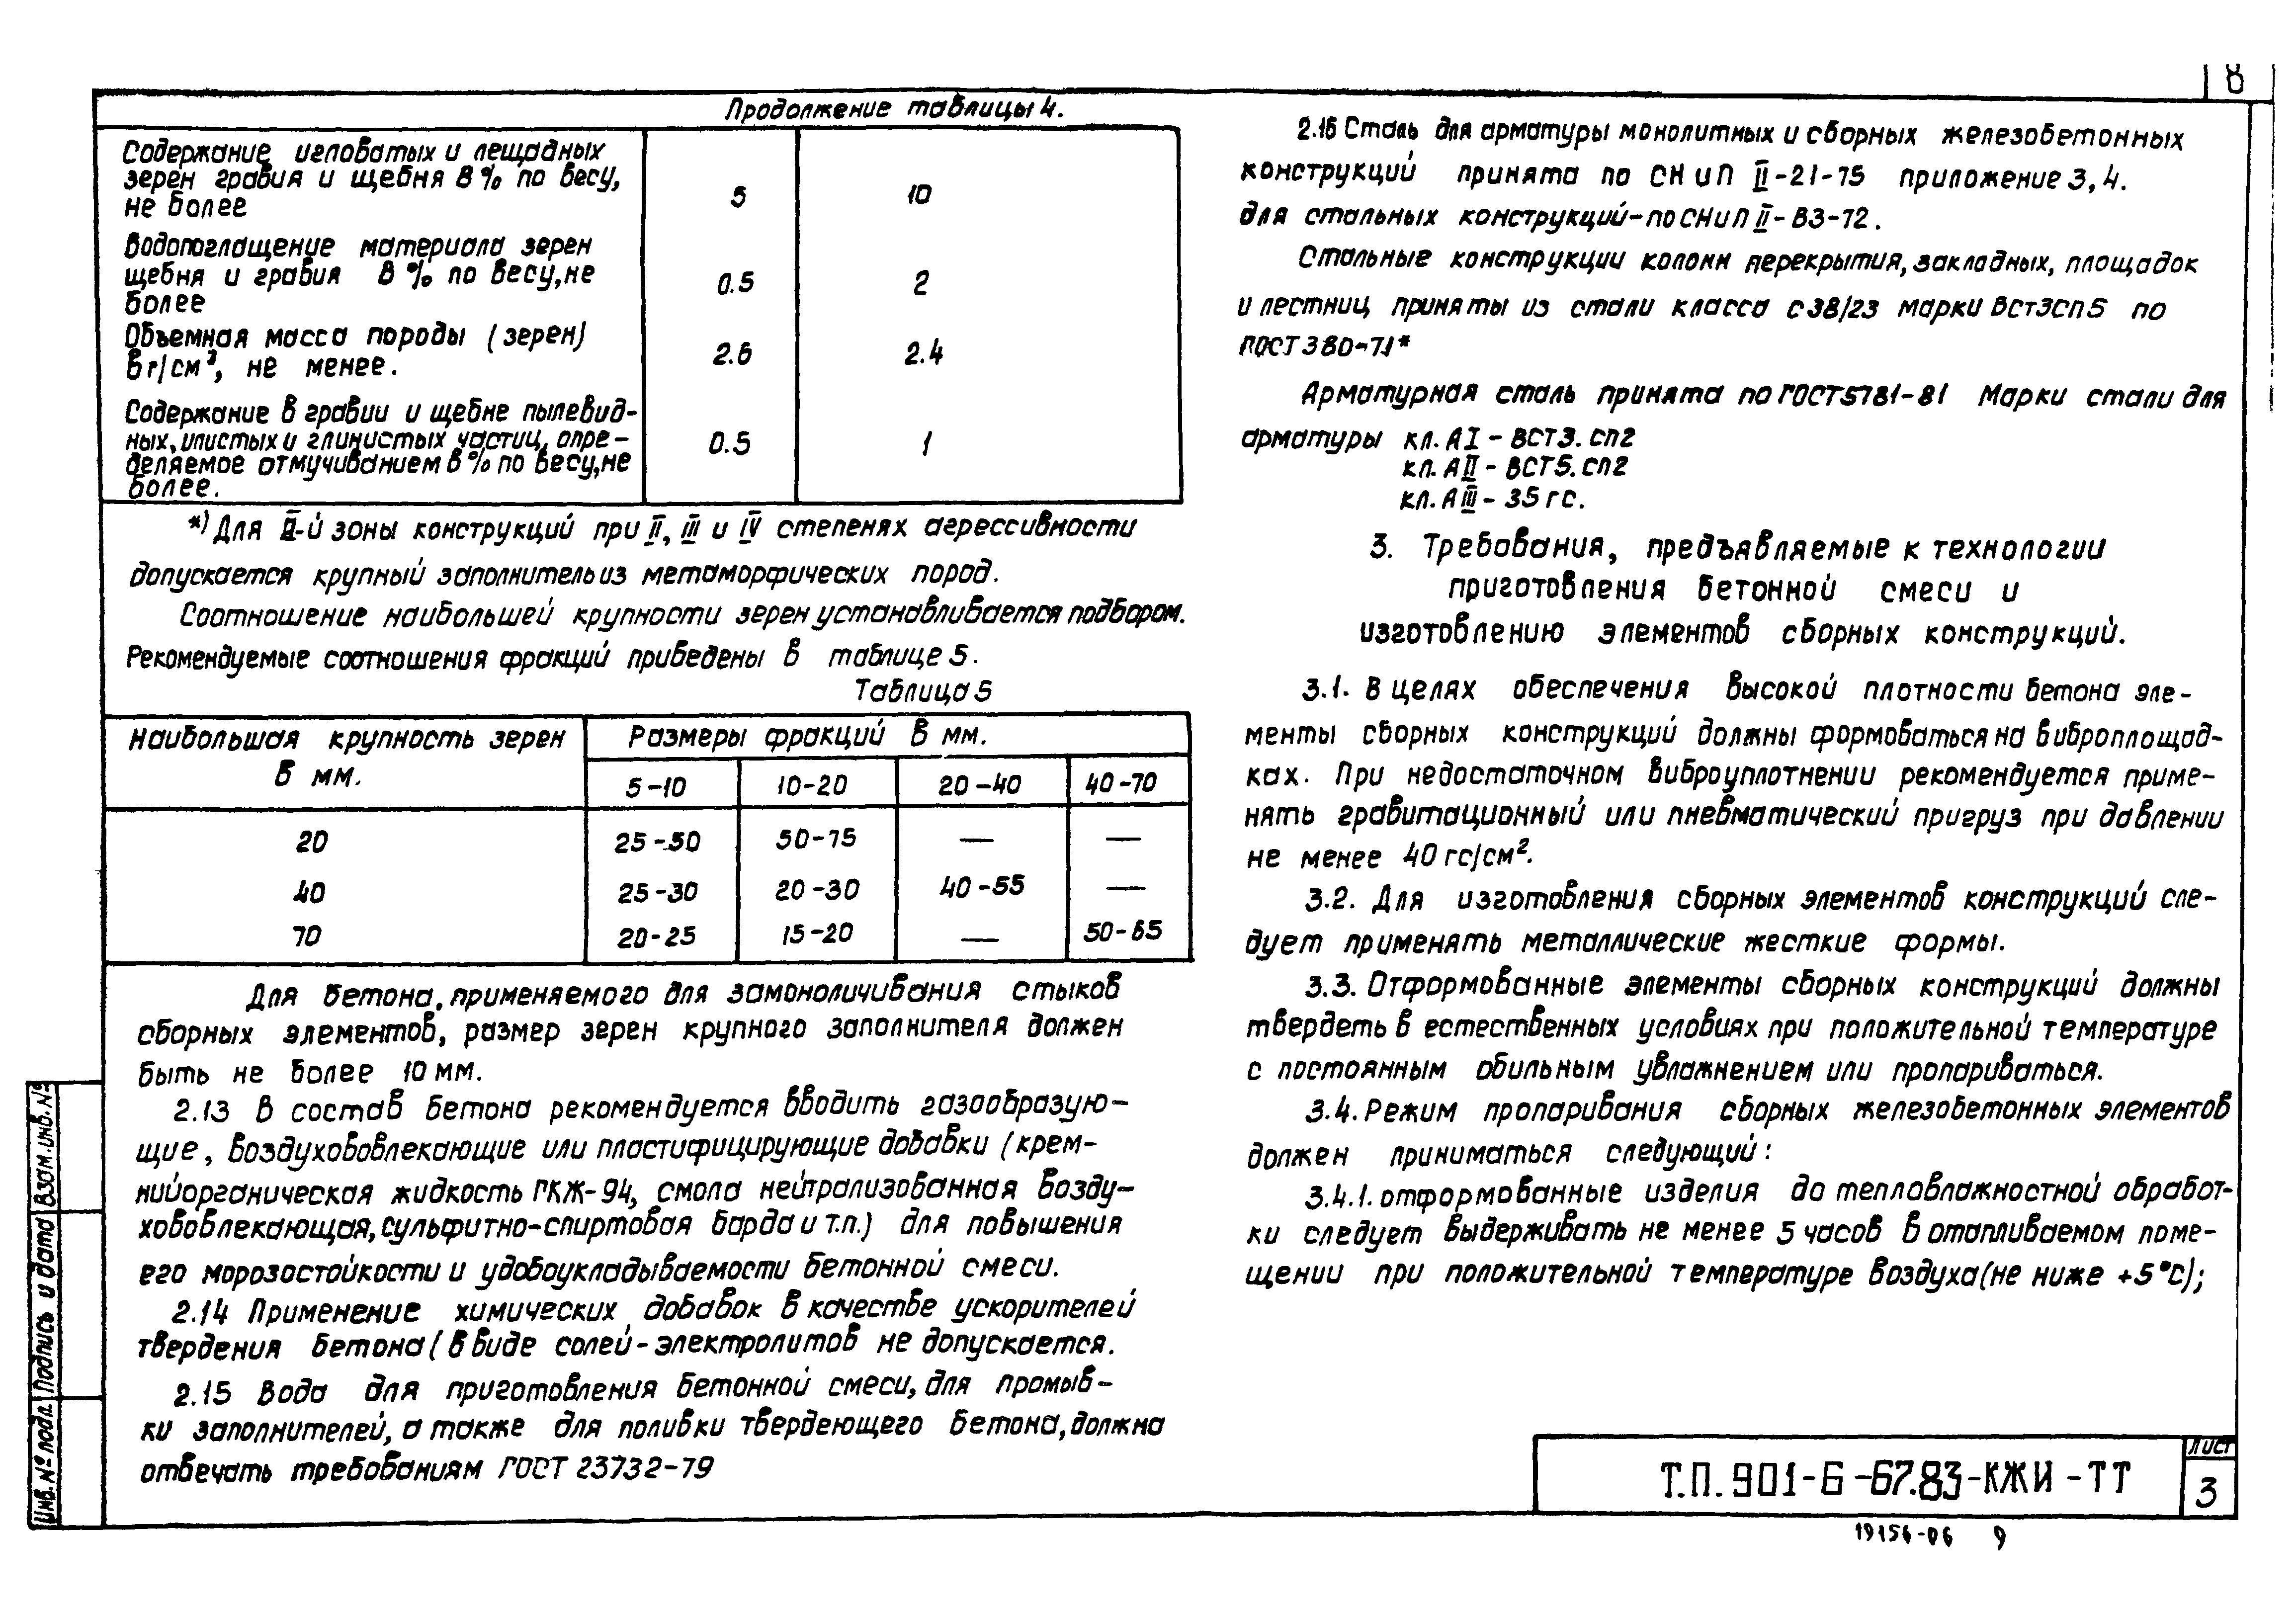 8
Продолжение таблицы 4.
Содержание игловатых и лещадных
зерен гравия и щебня в % по весу,
не более
5 10
Водопоглащение материала зерен
щебня и гравия в % по весу, не
более
0.5 2
Объемная масса породы (зерен)
в г/см³, не менее.
2.6 2.4
Содержание в гравии и щебне пылевид-
ных, илистых и глинистых частиц, опре-
деляемое отмучиванием в % по весу, не
более.
0.5 1
*) Для II-й зоны конструкций при II, III и IV степенях агрессивности
допускается крупный заполнитель из метаморфических пород.
Соотношение наибольшей крупности зерен устанавливается подбором.
Рекомендуемые соотношения фракций приведены в таблице 5.
Таблица 5
Наибольшая крупность зерен
в мм.
Размеры фракций в мм.
5-10 10-20 20-40 40-70
20 25-50 50-75 — —
40 25-30 20-30 40-55 —
70 20-25 15-20 — 50-65
Для бетона, применяемого для замоноличивания стыков
сборных элементов, размер зерен крупного заполнителя должен
быть не более 10 мм.
2.13 В состав бетона рекомендуется вводить газообразую-
щие, воздухововлекающие или пластифицирующие добавки (крем-
нийорганическая жидкость ГКЖ-94, смола нейтрализованная возду-
хововлекающая, сульфитно-спиртовая барда и т.п.) для повышения
его морозостойкости и удобоукладываемости бетонной смеси.
2.14 Применение химических добавок в качестве ускорителей
твердения бетона (в виде солей-электролитов не допускается.
2.15 Вода для приготовления бетонной смеси, для промыв-
ки заполнителей, а также для поливки твердеющего бетона, должна
отвечать требованиям ГОСТ 23732-79
2.16 Сталь для арматуры монолитных и сборных железобетонных
конструкций принята по СН и П II-21-75 приложение 3, 4.
для стальных конструкций-по СНиП II-В3-72.
Стальные конструкции колонн перекрытия, закладных, площадок
и лестниц приняты из стали класса С38/23 марки ВСт3СП5 по
ГОСТ 380-71*
Арматурная сталь принята по ГОСТ 5781-81 Марки стали для
арматуры кл. АI - ВСТ3. СП2
кл. АII - ВСТ5. СП2
кл. АIII - 35 ГС.
3. Требования, предъявляемые к технологии
приготовления бетонной смеси и
изготовлению элементов сборных конструкций.
3.1. В целях обеспечения высокой плотности бетона эле-
менты сборных конструкций должны формоваться на виброплощад-
ках. При недостаточном виброуплотнении рекомендуется приме-
нять гравитационный или пневматический пригруз при давлении
не менее 40 гс/см².
3.2. Для изготовления сборных элементов конструкций сле-
дует применять металлические жесткие формы.
3.3. Отформованные элементы сборных конструкций должны
твердеть в естественных условиях при положительной температуре
с постоянным обильным увлажнением или пропариваться.
3.4. Режим пропаривания сборных железобетонных элементов
должен приниматься следующий:
3.4.1. отформованные изделия до тепловлажностной обработ-
ки следует выдерживать не менее 5 часов в отапливаемом поме-
щении при положительной температуре воздуха (не ниже +5°С);
Взам. инв. №
Подпись и дата
Инв. № подл.
Т.П. 901-6-67.83-КЖИ-ТТ
Лист
3
19156-06 9